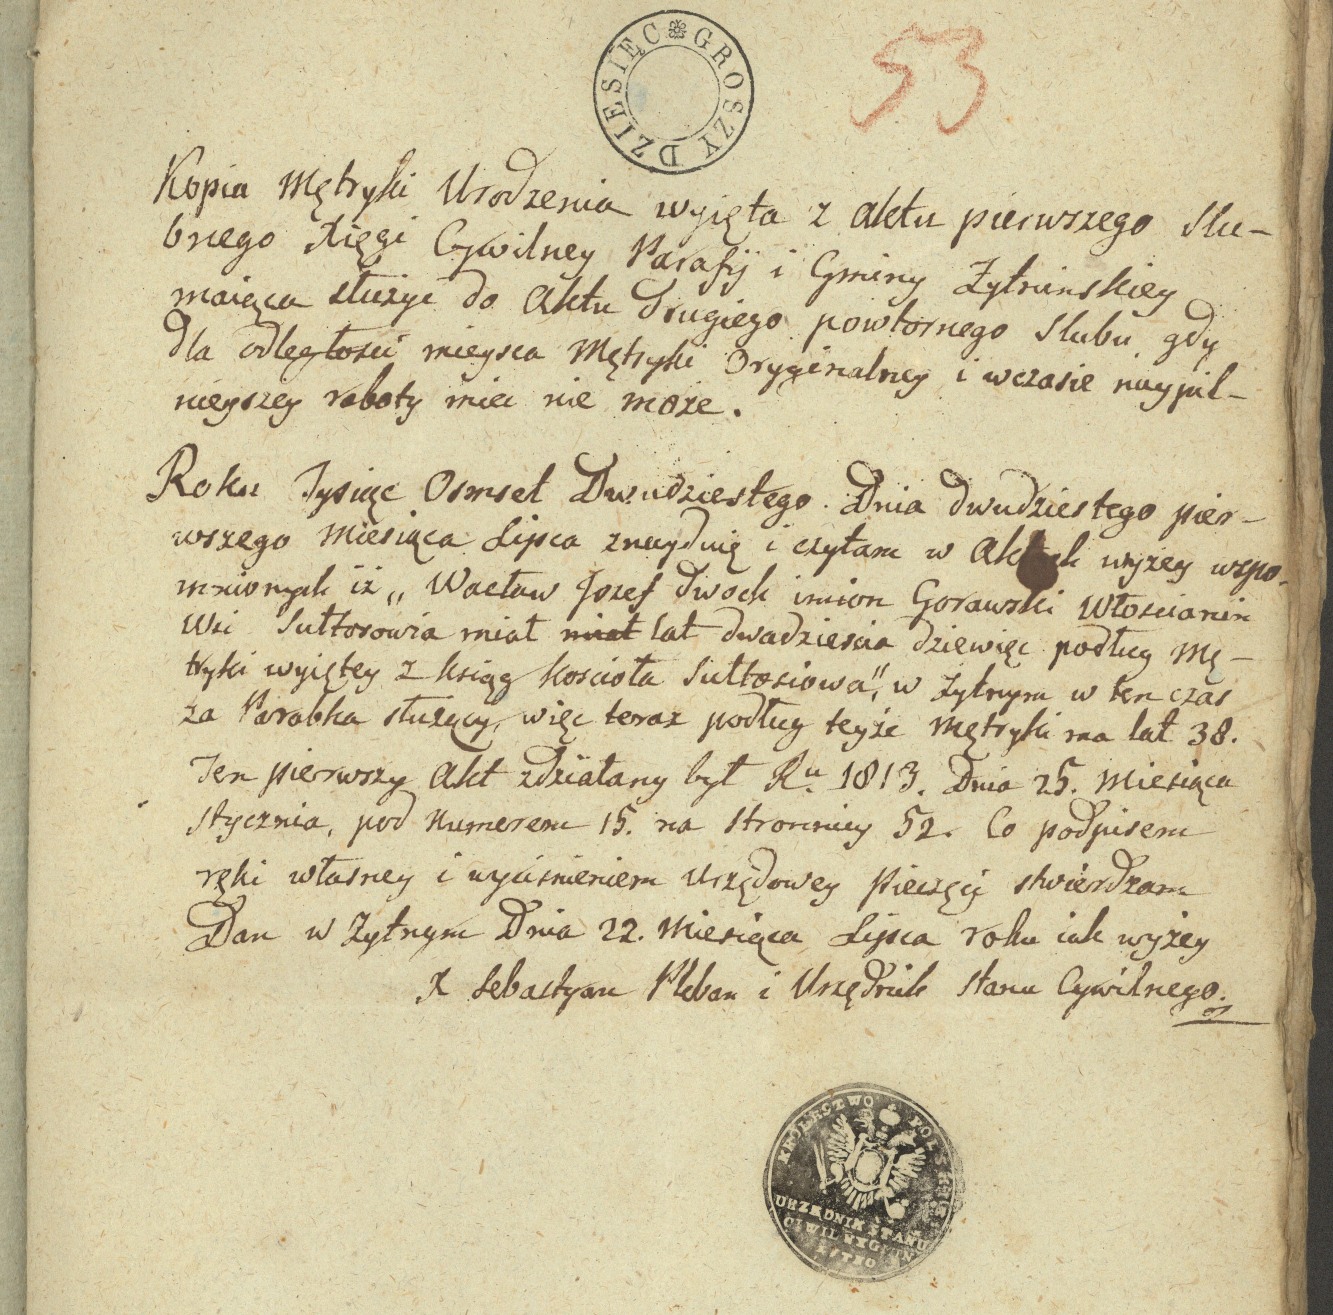 DZIESIĘC GROSZY
53
Kopia Mętryki Urodzenia wyięta z aktu pierwszego Slu-
bnego Xięgi Cywilney Parafij i Gminy Zytninskiey
maiąca służyc do Aktu drugiego powtornego Slubu gdy
dla odległosci mieysca Mętryki Oryginalney i wczasie naypil-
nieyszey roboty miec nie moze.
Roku Tysiąc Osmset Dwudziestego Dnia dwudziestego pier-
wszego Miesiąca Lipca znayduię i czytam w Aktach wyzey wspo-
mnionych iz „ Wacław Jozef dwoch imion Gorawski Włoscianin
Wsi Sułtosowia miał miał lat dwadziescia dziewięc podług Mę-
tryki wyiętey z ksiąg koscioła Sułtosiowa", w Zytnym w ten czas
za Parobka służący, więc teraz podług teyże Mętryki ma lat 38.
Ten pierwszy Akt zdziałany był Ru 1813. Dnia 25. Miesiąca
Stycznia, pod Numerem 15. na stronnicy 52. Co podpisem
ręki własney i wyciśnieniem Urzędowey Pieczęci stwierdzam
Dan w Zytnym Dnia 22. Miesiąca Lipca roku iak wyżey
X Sebastyan Pleban i Urzędnik Stanu Cywilnego.
KROLESTWO POLSKIE
URZEDNIK STANU
CYWILNEGO